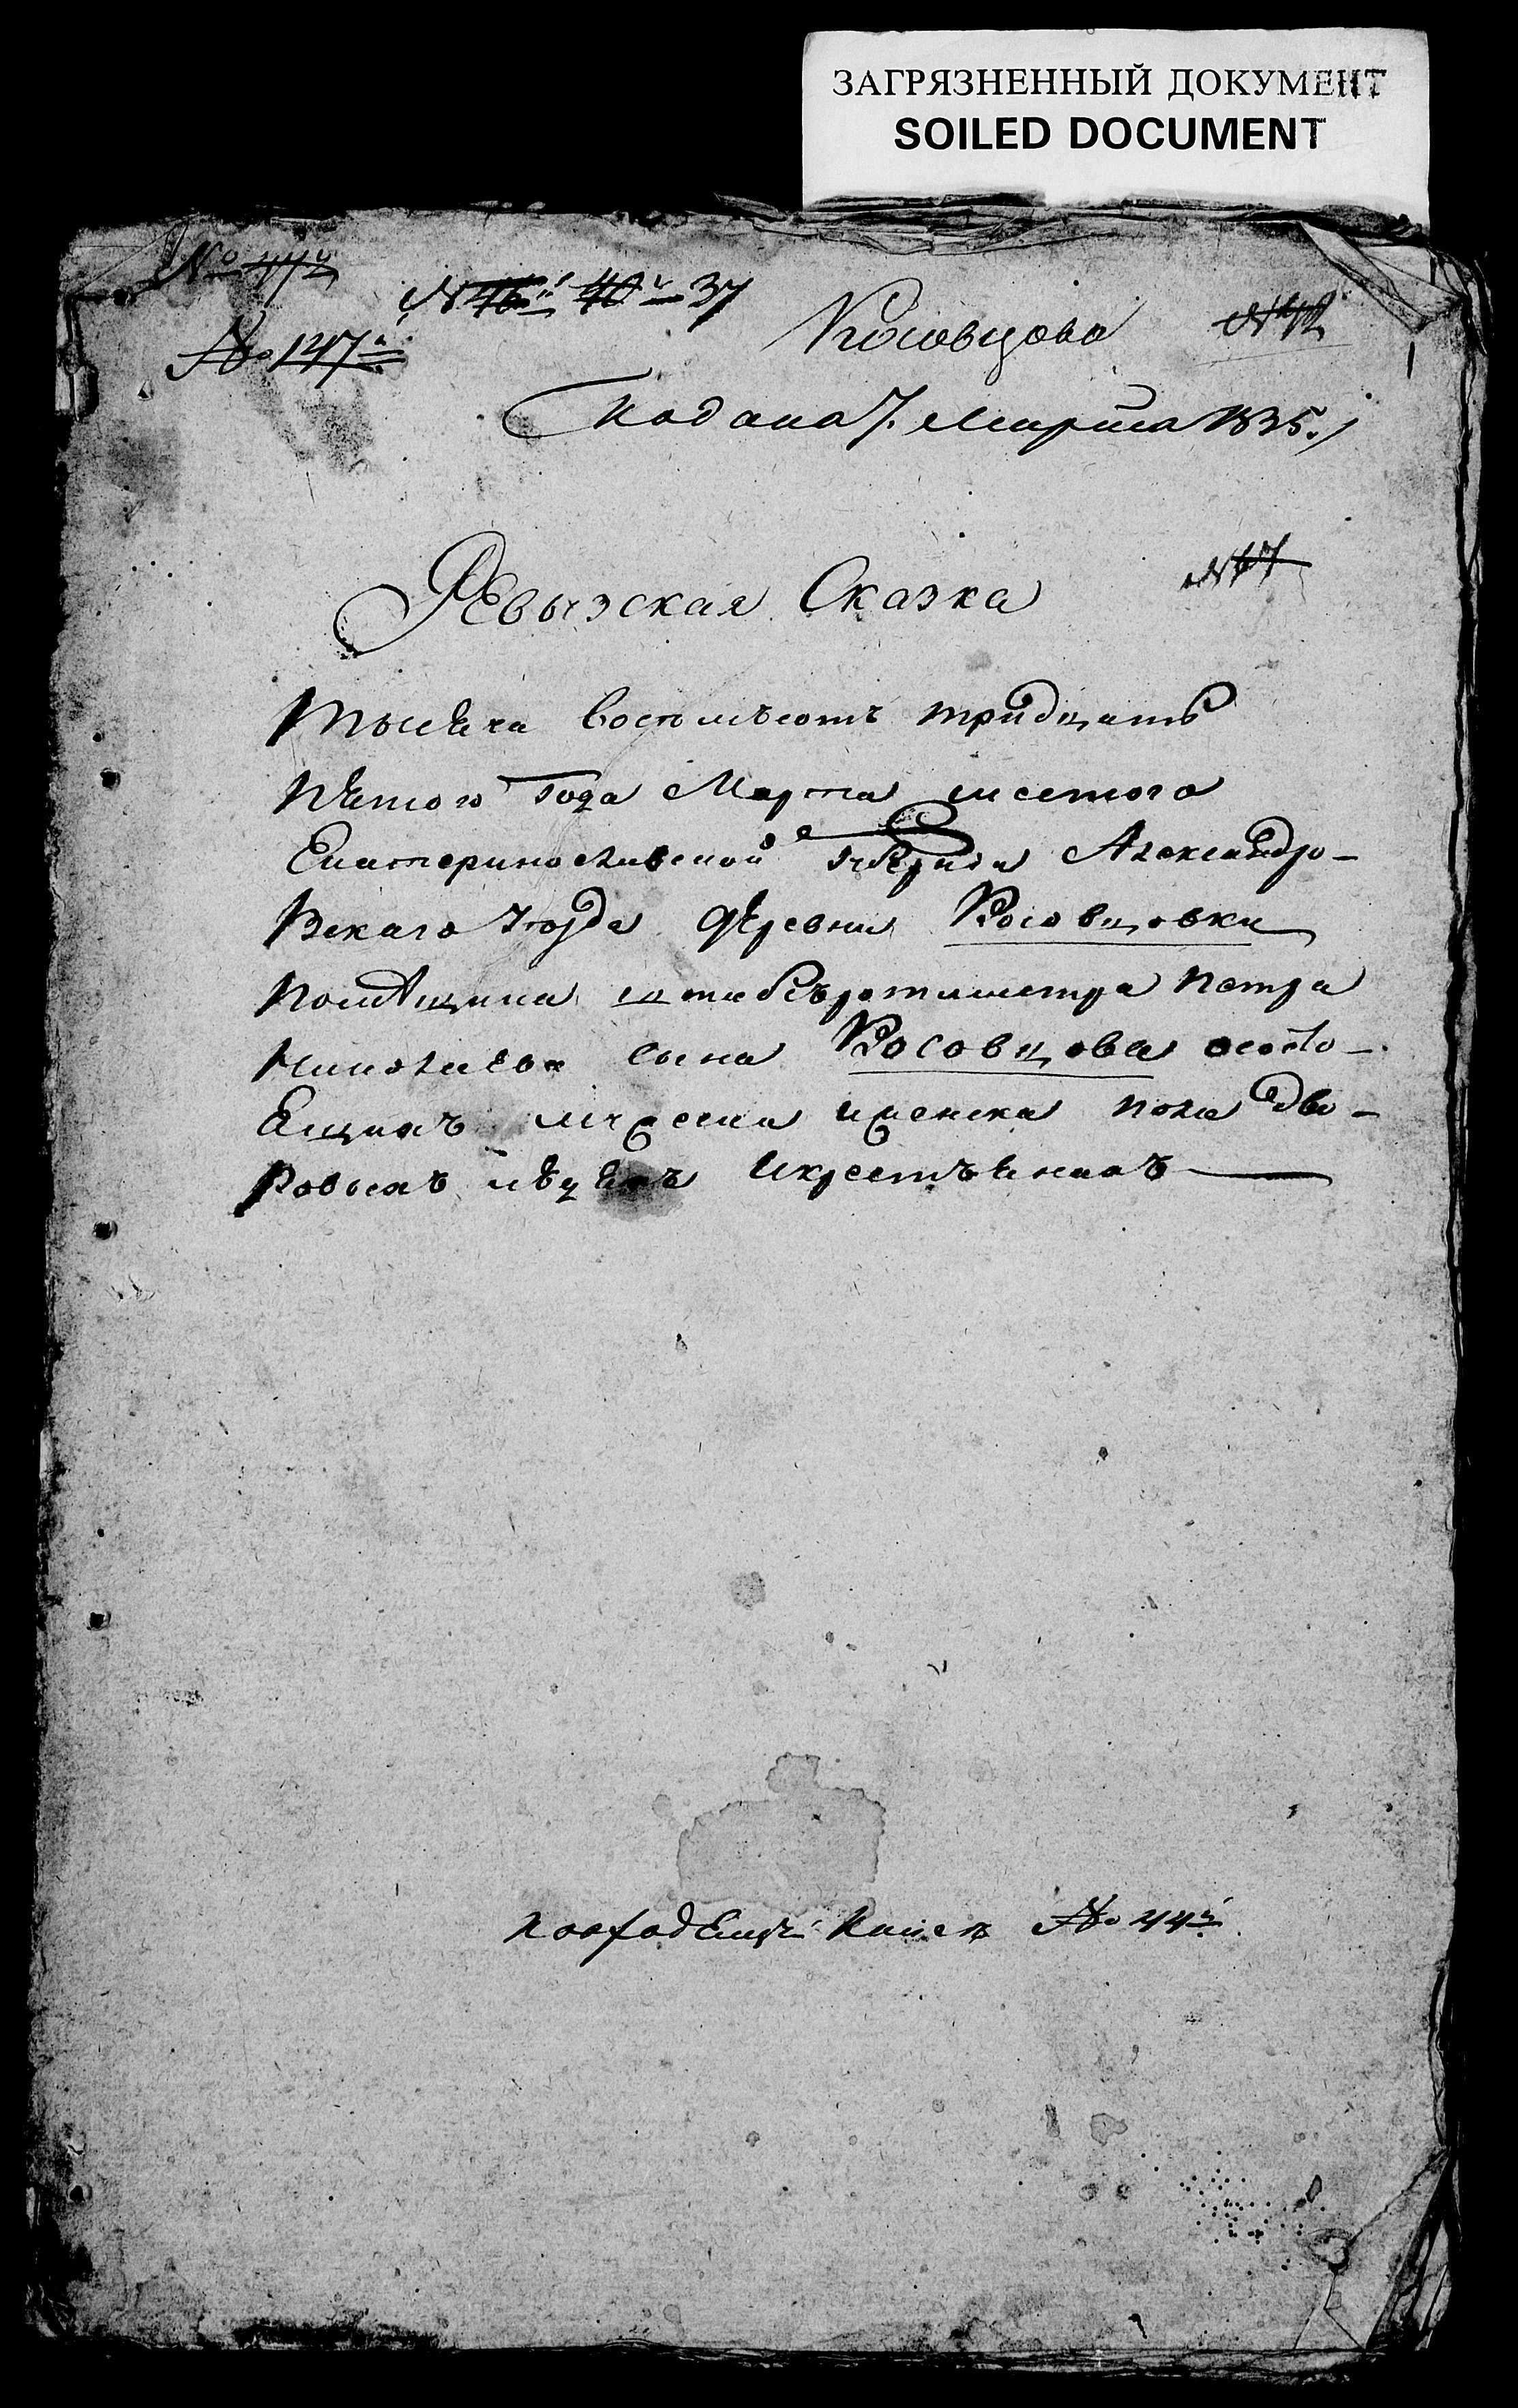 ЗАГРЯЗНЕННЫЙ ДОКУМЕНТ
SOILED DOCUMENT
№ 147
37
Косовцова
1
Подана 7. Марта 1835.
Ревыэская Сказка
№ 47
Тысяча восемьсотъ тридцать
пятого года Марта шестого
Екатеринославской Александро-
вскаго деревни Косовцовки
помѣщика штабсъротмистра Петра
Николаева сына Косовцова ососто-
ящихъ мужеска и женска пола дво-
ровыхъ людяхъ икрестьянахъ
№ 44